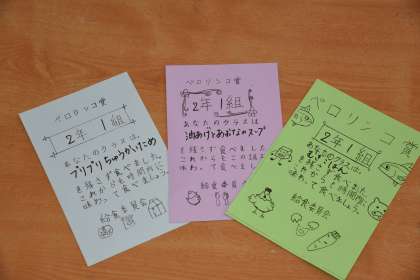 ペロリンコ賞
2年 1組
あなたのクラスは、
プリプリちゅうかいため
を残さず食べました。
これからも時間内に
味わって食べましょう。
給食委員会
ペロリンコ賞
2年 1組
あなたのクラスは
油あげとあおなのスープ
を残さず食べました。
これからもこの調
味わって食べま
給食委員会
ペロリンコ賞
2年 1組
あなたのクラスは、
を残さず食べました
これからも時間内に
味わって食べましょう。
給食委員会